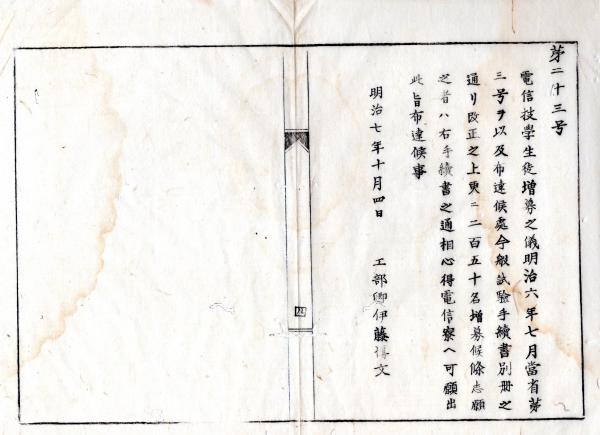 第二十三号
電信技學生徒増募之儀明治六年七月當省第
三号ヲ以及布達候處今般試驗手續書別冊之
通リ改正之上更ニ二百五十名増募候條志願
之者ハ右手續書之通相心得電信寮へ可願出
此旨布達候事
明治七年十月四日
工部卿伊藤博文